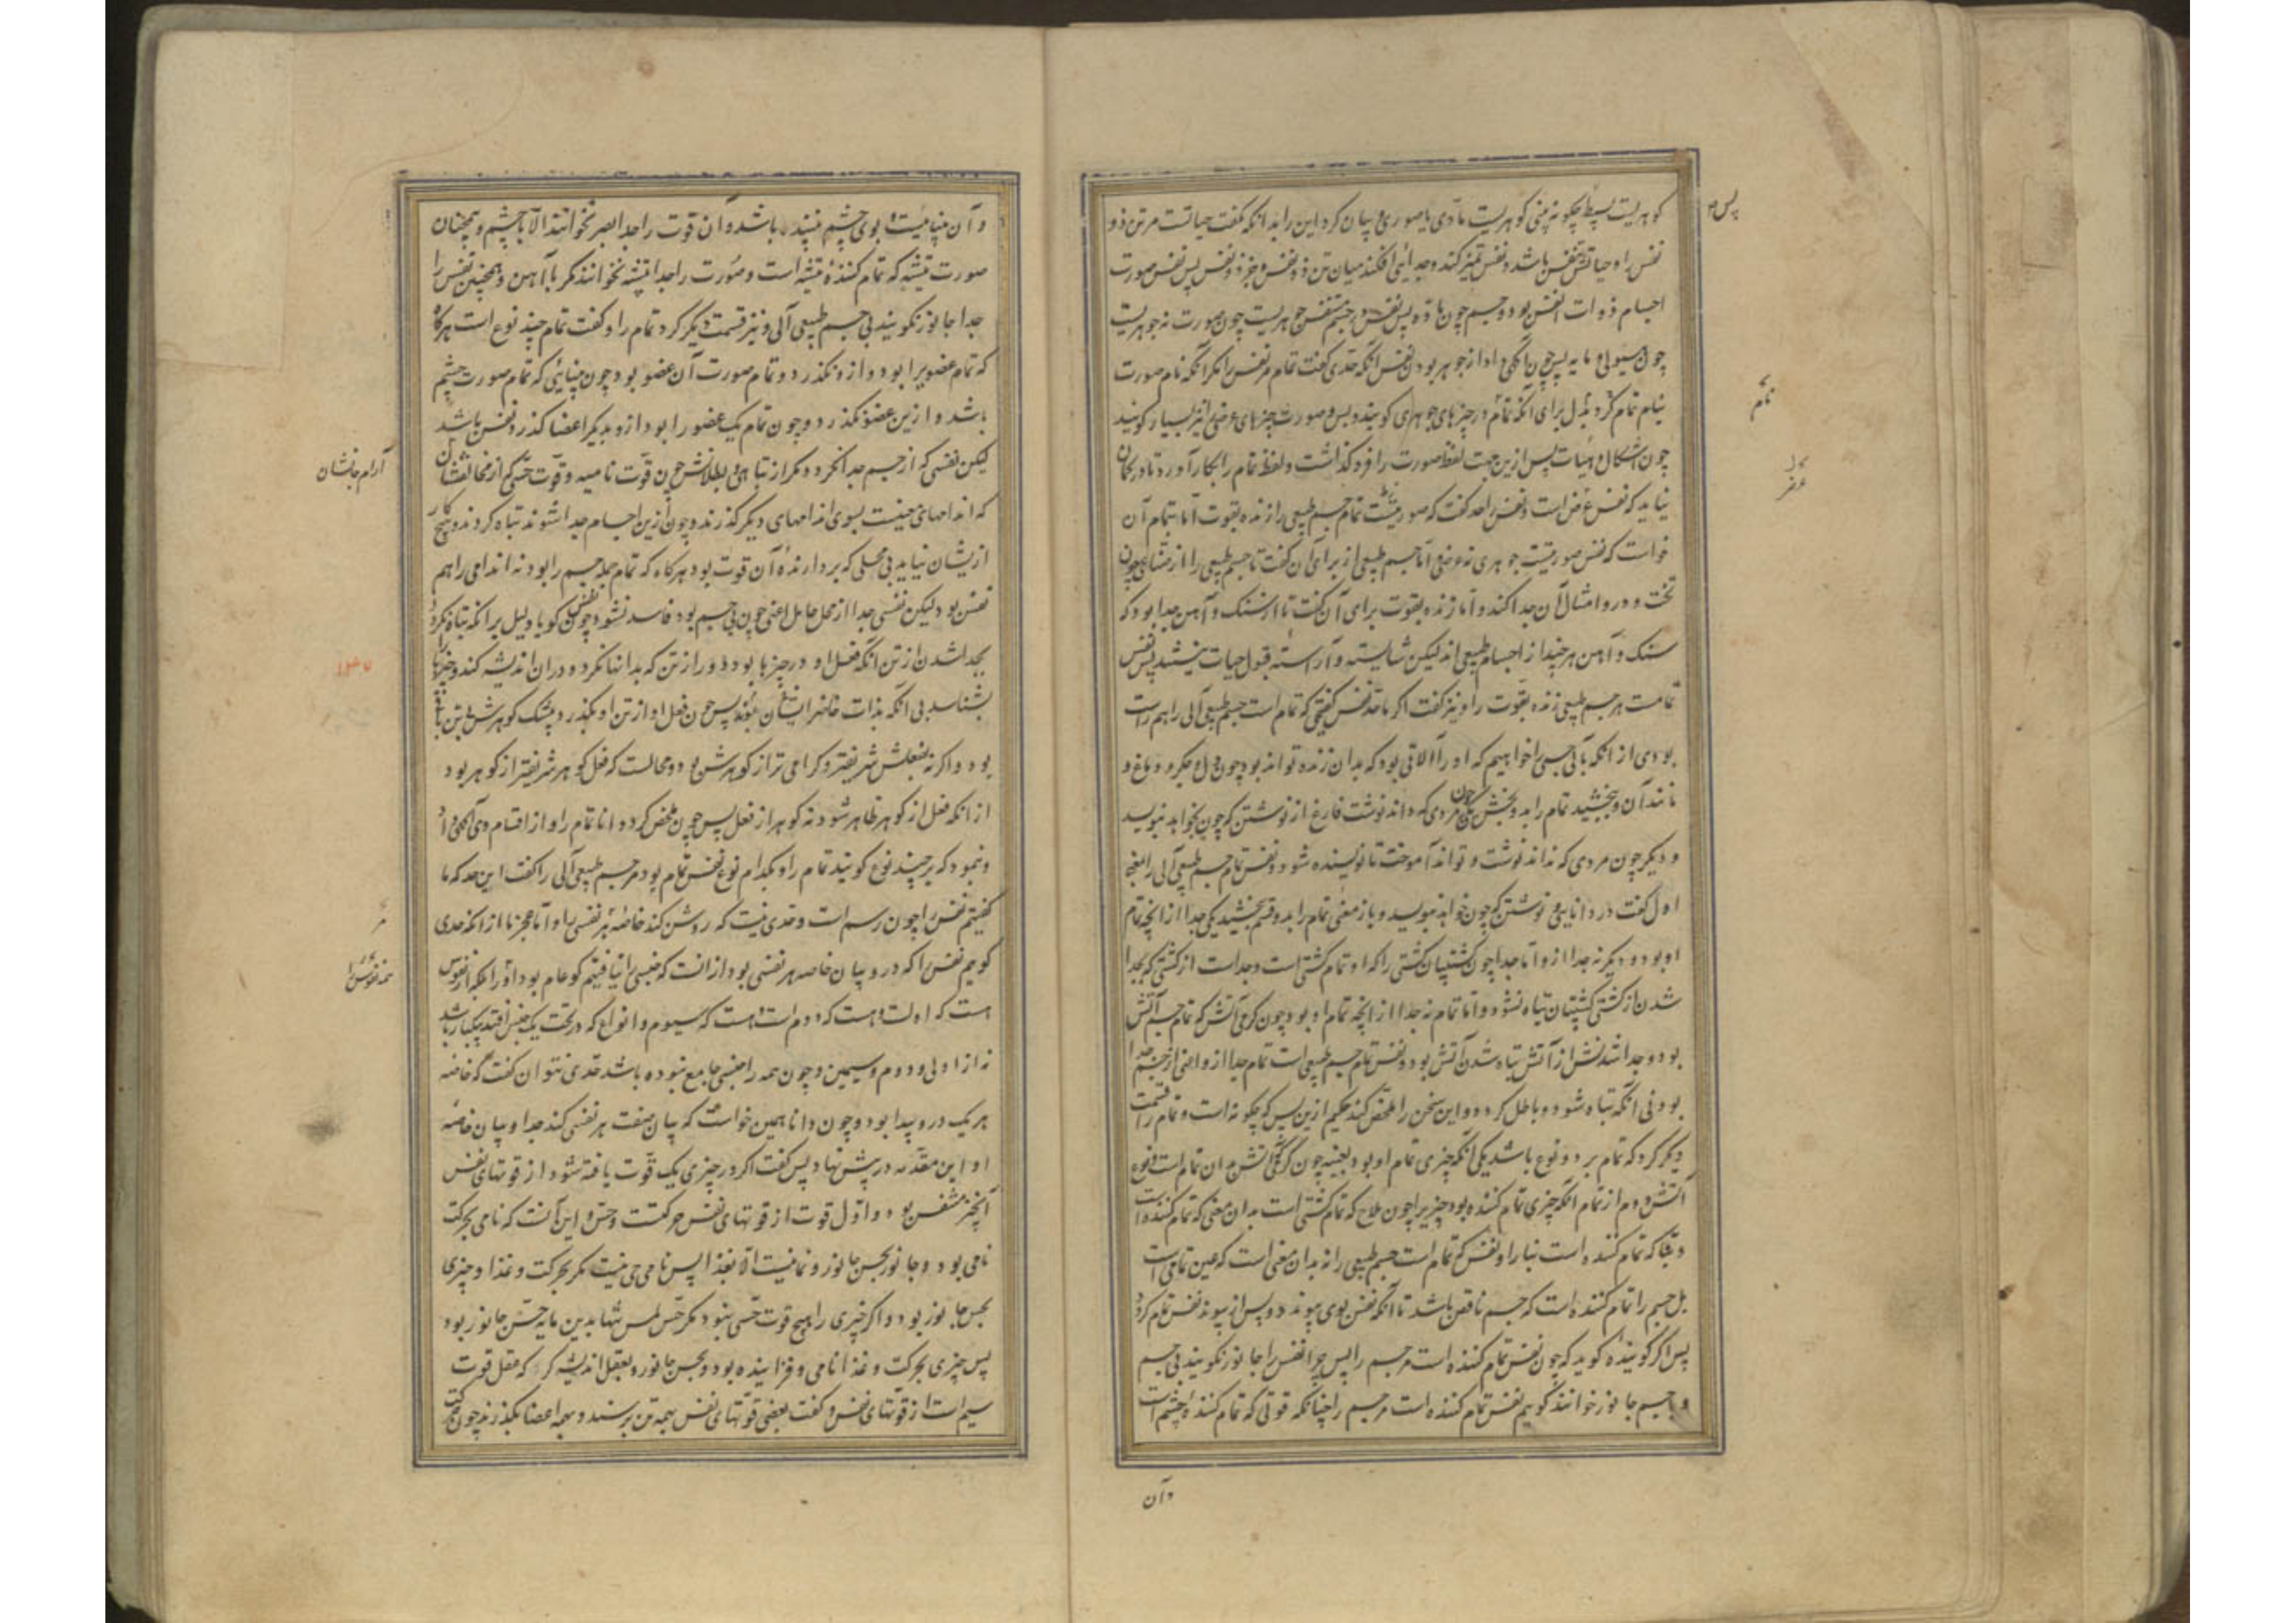 گوهریست بسیط چگونه یعنی گوهریست مادی یا صوری و بیان کرد این را بدانکه گفت حیاتست مر تن ذو
نفس را و حیاتش بنفس باشد و نفس تمیز کند و جدائی افکند میان تن ذو نفس و جز ذو نفس پس نفس صورت
اجسام ذوات انفس بود و جسم چون ماده پس نفس در جسم متنفس جوهریست چون صورت نه جوهریست
چون هیولی و مایه پس چون آگهی داد از جوهر بودن نفس آنگه حدی گفت تمام مر نفس را مگر آنکه نام صورت
بنام تمام کرد بدل برای آنکه تمام در چیزهای جوهری گویند و بس و صورت چیزهای عرضی نیز بسیار گویند
چون اشکال و هیئات پس ازین جهت لفظ صورت را فرو گذاشت و لفظ تمام را بکار آورد تا در گمان
نیاید که نفس عرض است و نفس را حد گفت که صورتیست تمام جسم طبیعی را زنده بقوت اما بتمام آن
خواست که نفس صورتیست جوهری نه عرضی اما جسم طبیعی از برای آن گفت تا جسم طبیعی را از صناعی چون
تخت و در و امثال آن جدا کند و اما زنده بقوت برای آن گفت تا از سنگ و آهن جدا بود که
سنگ و آهن هر چند از اجسام طبیعی‌اند لیکن شایسته و آراسته قبول حیات نیستند پس نفس
تمامست هر جسم طبیعی زنده بقوت را و نیز گفت اگر ما حد نفس گفتیمی که تمام است جسم طبیعی آلی را هم راست
بودی از آنکه بآلی جسمی را خواهیم که او را آلاتی بود که بدان زنده تواند بود چون دل و جگر و دماغ و
مانند آن و ببخشید تمام را بدو بخش یکی چون مردی که داند نوشت فارغ از نوشتن که چون بخواهد بنویسد
و دیگر چون مردی که نداند نوشت و تواند آموخت تا نویسنده شود و نفس تمام جسم طبیعی آلی را بمعنی
اول گفت در دانایی و نوشتن که چون خواهد بنویسد و باز معنی تمام را بدو قسم ببخشید یکی جدا از آنچه تمام
او بود و دیگر نه جدا ازو اما جدا چون کشتیبان کشتی را که او تمام کشتی است و جداست از کشتی که بجدا
شدن از کشتی کشتیبان تباه نشود و اما تمام نه جدا از آنچه تمام او بود چون گرمی آتش که تمام جسم آتش
بود و جدا شدنش از آتش تباه شدن آتش بود و نفس تمام جسم طبیعی است تمام جدا ازو اعنی از جسم جدا
بود بی آنکه تباه شود و باطل گردد و این سخن را ملخص کند حکیم ازین پس که چگونه است و تمام را قسمت
دیگر کرد که تمام بر دو نوع باشد یکی آنکه چیزی تمام او بود بعینه چون گرمی آتش بدان تمام است و نوع
دوم از تمام آنکه چیزی تمام کننده بود چیزی را چون ملاح که تمام کشتی است بدان معنی که تمام کننده است
و بنا که تمام کننده است بنا را و نفس که تمام است جسم طبیعی را نه بدان معنی است که عین تمامی است
بل جسم را تمام کننده است که جسم ناقص باشد تا آنکه نفس بوی پیوندد و پس از پیوند نفس تمام گردد
پس اگر گوینده گوید که چون نفس تمام کننده است مر جسم را پس چرا نفس را جانور نگویند بی جسم
و با جسم جانور خوانند گوییم نفس تمام کننده است مر جسم را چنانکه قوتی که تمام کننده چشم است
پس
تمام
وآن
و آن بیناییست بوی چشم بیننده باشد و آن قوت را جدا بصر نخوانند الا با چشم و همچنان
صورت تیشه که تمام کننده تیشه است و صورت را جدا تیشه نخوانند مگر با آهن و همچنین نفس را
جدا جانور نگویند بی جسم طبیعی آلی و نیز قسمت دیگر کرد تمام را و گفت تمام چند نوع است هرگاه
که تمام عضوی را بود و ازو نگذرد و تمام صورت آن عضو بود چون بینایی که تمام صورت چشم
باشد و ازین عضو نگذرد و چون تمام یک عضو را بود و ازو بدیگر اعضا گذرد نفس باشد
لیکن نفسی که از جسم جدا نگردد مگر از تباهی و بطلانش چون قوت نامیه و قوت حسی که از
که اندامهای جنبست بسوی اندامهای دیگر گذرند و چون ازین اجسام جدا شوند تباه گردند و هیچ کار
ازیشان نیاید بی محلی که بردارنده آن قوت بود هرگاه که تمام همه جسم را بود نه اندامی را هم
نفس بود لیکن نفسی جدا از محل حامل اعنی چون بی جسم بود فاسد نشود چون نفس گویا و دلیل بر آنکه تباه نگردد
بجدا شدن از تن آنکه فعل او در چیزها بود دور از تن که بدانها نگرد و در آن اندیشه کند و چیزها را
بشناسد بی آنکه بذات حاضر ایشان شود پس چون فعل او از تن او بگذرد بیشک گوهرش بی تن باقی
بود و اگر نه فعلش شریفتر و گرامی‌تر از گوهرش بود و محالست که فعل گوهر شریفتر از گوهر بود
از آنکه فعل از گوهر ظاهر شود نه گوهر از فعل پس چون ملخص کرد دانا تمام را و از اقسام وی آگهی داد
و نمود که بر چند نوع گویند تمام را و بکدام نوع نفس تمام بود مر جسم طبیعی آلی را گفت این حد که ما
گفتیم نفس را چون رسم است و حدی نیست که روشن کند خاصه هر نفسی را و اما عجز ما از آنکه حدی
گوییم نفس را که درو بیان خاصه هر نفسی بود از آنست که جنسی را نیافتیم که عام بود
هست که اولست و هست که دوم است و هست که سیوم و انواع که در تحت یک جنس افتد بیکبار باشد
نه از اولی و دوم و سیمین و چون همه را جنسی جامع نبوده باشد حدی نتوان گفت که خاصه
هر یک درو پیدا بود و چون دانا همین خواست که بیان صفت هر نفسی کند جدا و بیان خاصه
او این مقدمه در پیش نهاد پس گفت اگر در چیزی یک قوت یافته شود از قوتهای نفس
آنچیز متنفس بود و اول قوت از قوتهای نفس حرکتست و حس و این آنست که نامی بحرکت
نامی بود و جانور بحس جانور و نما نیست الا بغذا پس نامی حی نیست مگر بحرکت و غذا و چیزی
بحس جانور بود و اگر چیزی را هیچ قوت حسی نبود مگر حس لمس تنها بدین مایه حس جانور بود
پس چیزی بحرکت و غذا نامی و فزاینده بود و بحس جانور و بعقل اندیشه گر که عقل قوت
سیم است از قوتهای نفس و گفت بعضی قوتهای نفس بهمه تن برسند و بهمه اعضا بگذرند چون
آرام جانشان
همه نفوس را